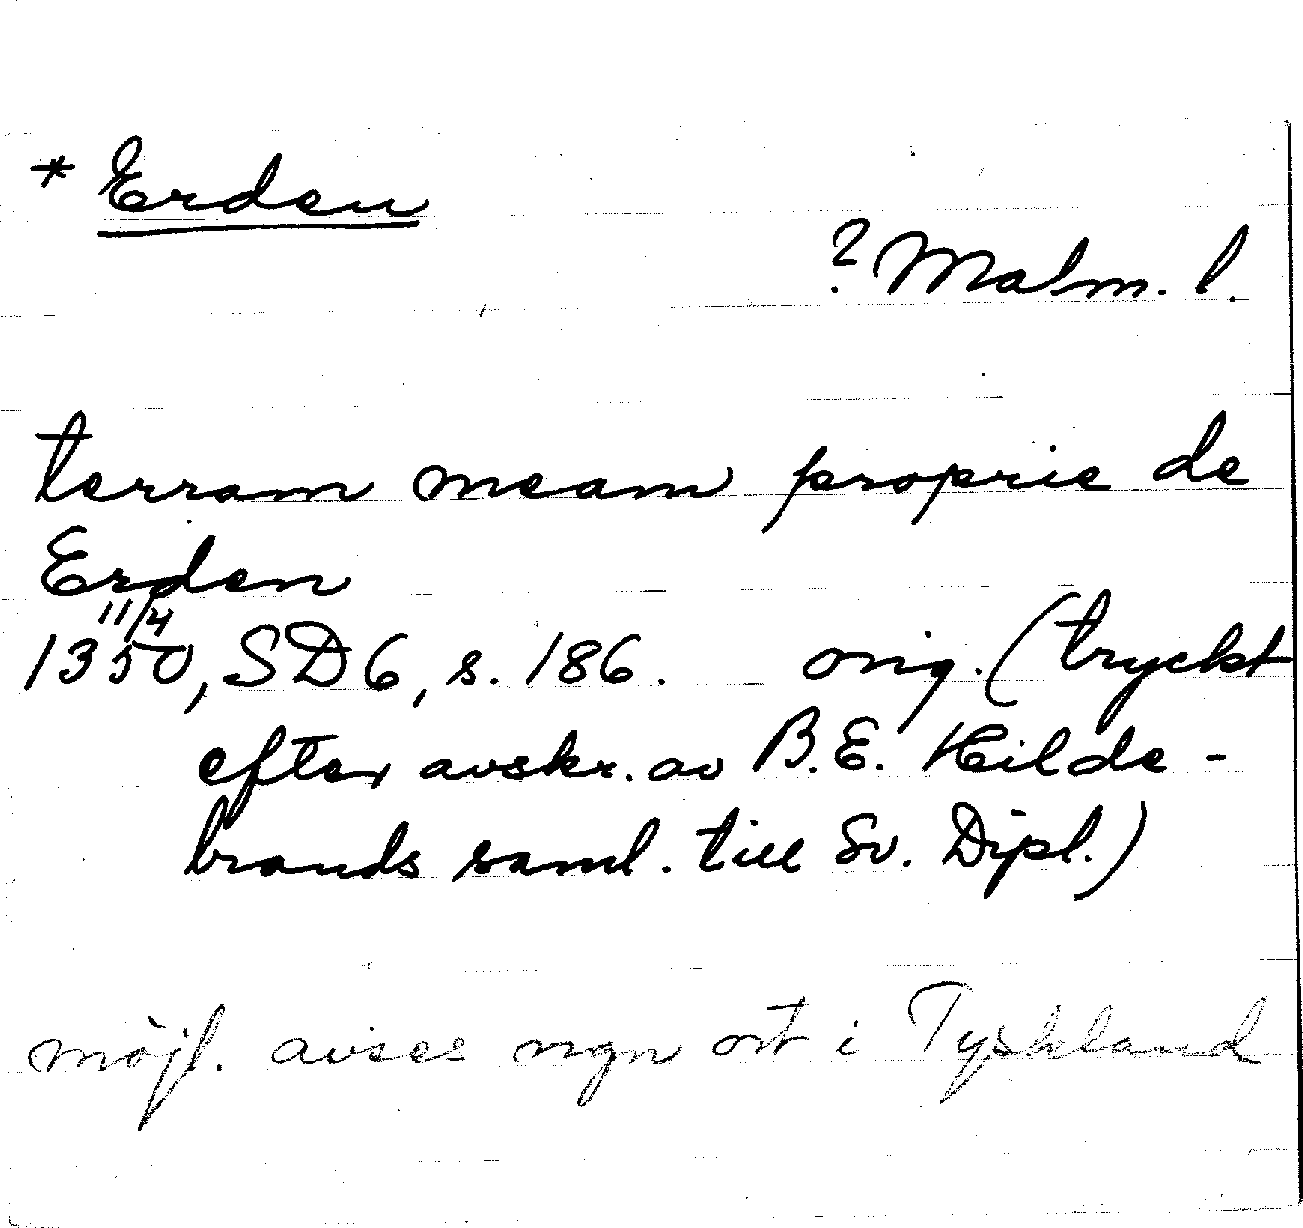 * Erden
? Malm. l.
terram meam proprie de
Erden
11/4
1350, SD 6, s. 186. orig. (tryckt
efter avskr. av B.E. Hilde-
brands saml. till Sv. Dipl.)
möjl. avses ngn ort i Tyskland